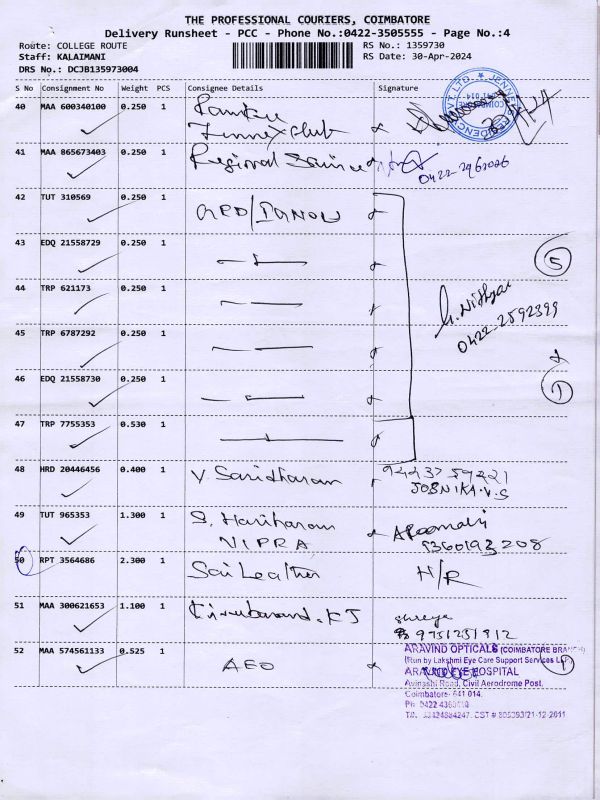 THE PROFESSIONAL COURIERS, COIMBATORE
Delivery Runsheet - PCC - Phone No.:0422-3505555 - Page No.:4
Route: COLLEGE ROUTE RS No.: 1359730
Staff: KALAIMANI RS Date: 30-Apr-2024
DRS No.: DCJB135973004
S No Consignment No Weight PCS Consignee Details Signature
40 MAA 600340100 0.250 1
Club
41 MAA 865673403 0.250 1 Regional Science
0422-2962026
42 TUT 310569 0.250 1
43 EDQ 21558729 0.250 1
5
44 TRP 621173 0.250 1
G. Nithya
0422-2592399
45 TRP 6787292 0.250 1
46 EDQ 21558730 0.250 1
1
47 TRP 7755353 0.530 1
48 HRD 20446456 0.400 1 V Saridharan 9443759221
JOBNIKA.V.S
49 TUT 965353 1.300 1 S. Hariharan
NIPRA 9360193208
50 RPT 3564686 2.300 1 Sai Leather H/R
51 MAA 300621653 1.100 1 Shreya
9751251812
52 MAA 574561133 0.525 1 AEO
ARAVIND OPTICALS (COIMBATORE BRANCH)
(Run by Lakshmi Eye Care Support Services LLP)
ARAVIND EYE HOSPITAL
Avinashi Road, Civil Aerodrome Post,
Coimbatore- 641 014.